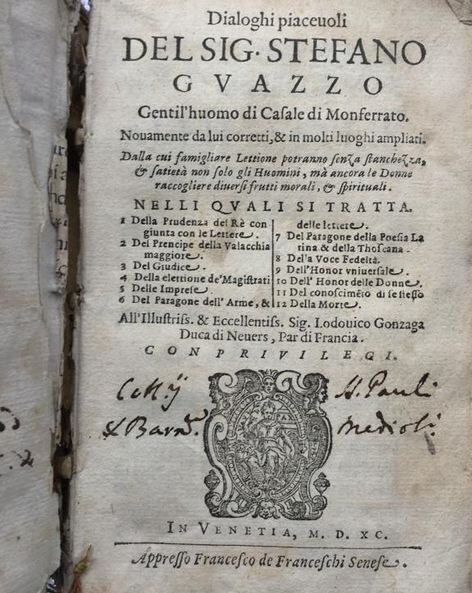 Dialoghi piaceuoli
DEL SIG. STEFANO
GVAZZO
Gentil'huomo di Casale di Monferrato.
Nouamente da lui corretti, & in molti luoghi ampliati.
Dalla cui famigliare Lettione potranno senza stanchezza,
& satietà non solo gli Huomini, mà ancora le Donne
raccogliere diuersi frutti morali, & spirituali.
NELLI QVALI SI TRATTA.
1 Della Prudenza del Rè con
giunta con le Lettere.
2 Del Prencipe della Valacchia
maggiore.
3 Del Giudice.
4 Della elettione de' Magistrati
5 Delle Imprese
6 Del Paragone dell' Arme, &
delle lettere.
7 Del Paragone della Poesia La
tina & della Thoscana.
8 Della Voce Fedeltà.
9 Dell'Honor vniuersale.
10 Dell' Honor delle Donne.
11 Del conoscimẽto di se stesso
12 Della Morte.
All'Illustriss. & Eccellentiss. Sig. Lodouico Gonzaga
Duca di Neuers, Par di Francia.
CON PRIVILEGI.
S. Pauli
Mediol.
IN VENETIA, M. D. XC.
Appresso Francesco de Franceschi Senese.